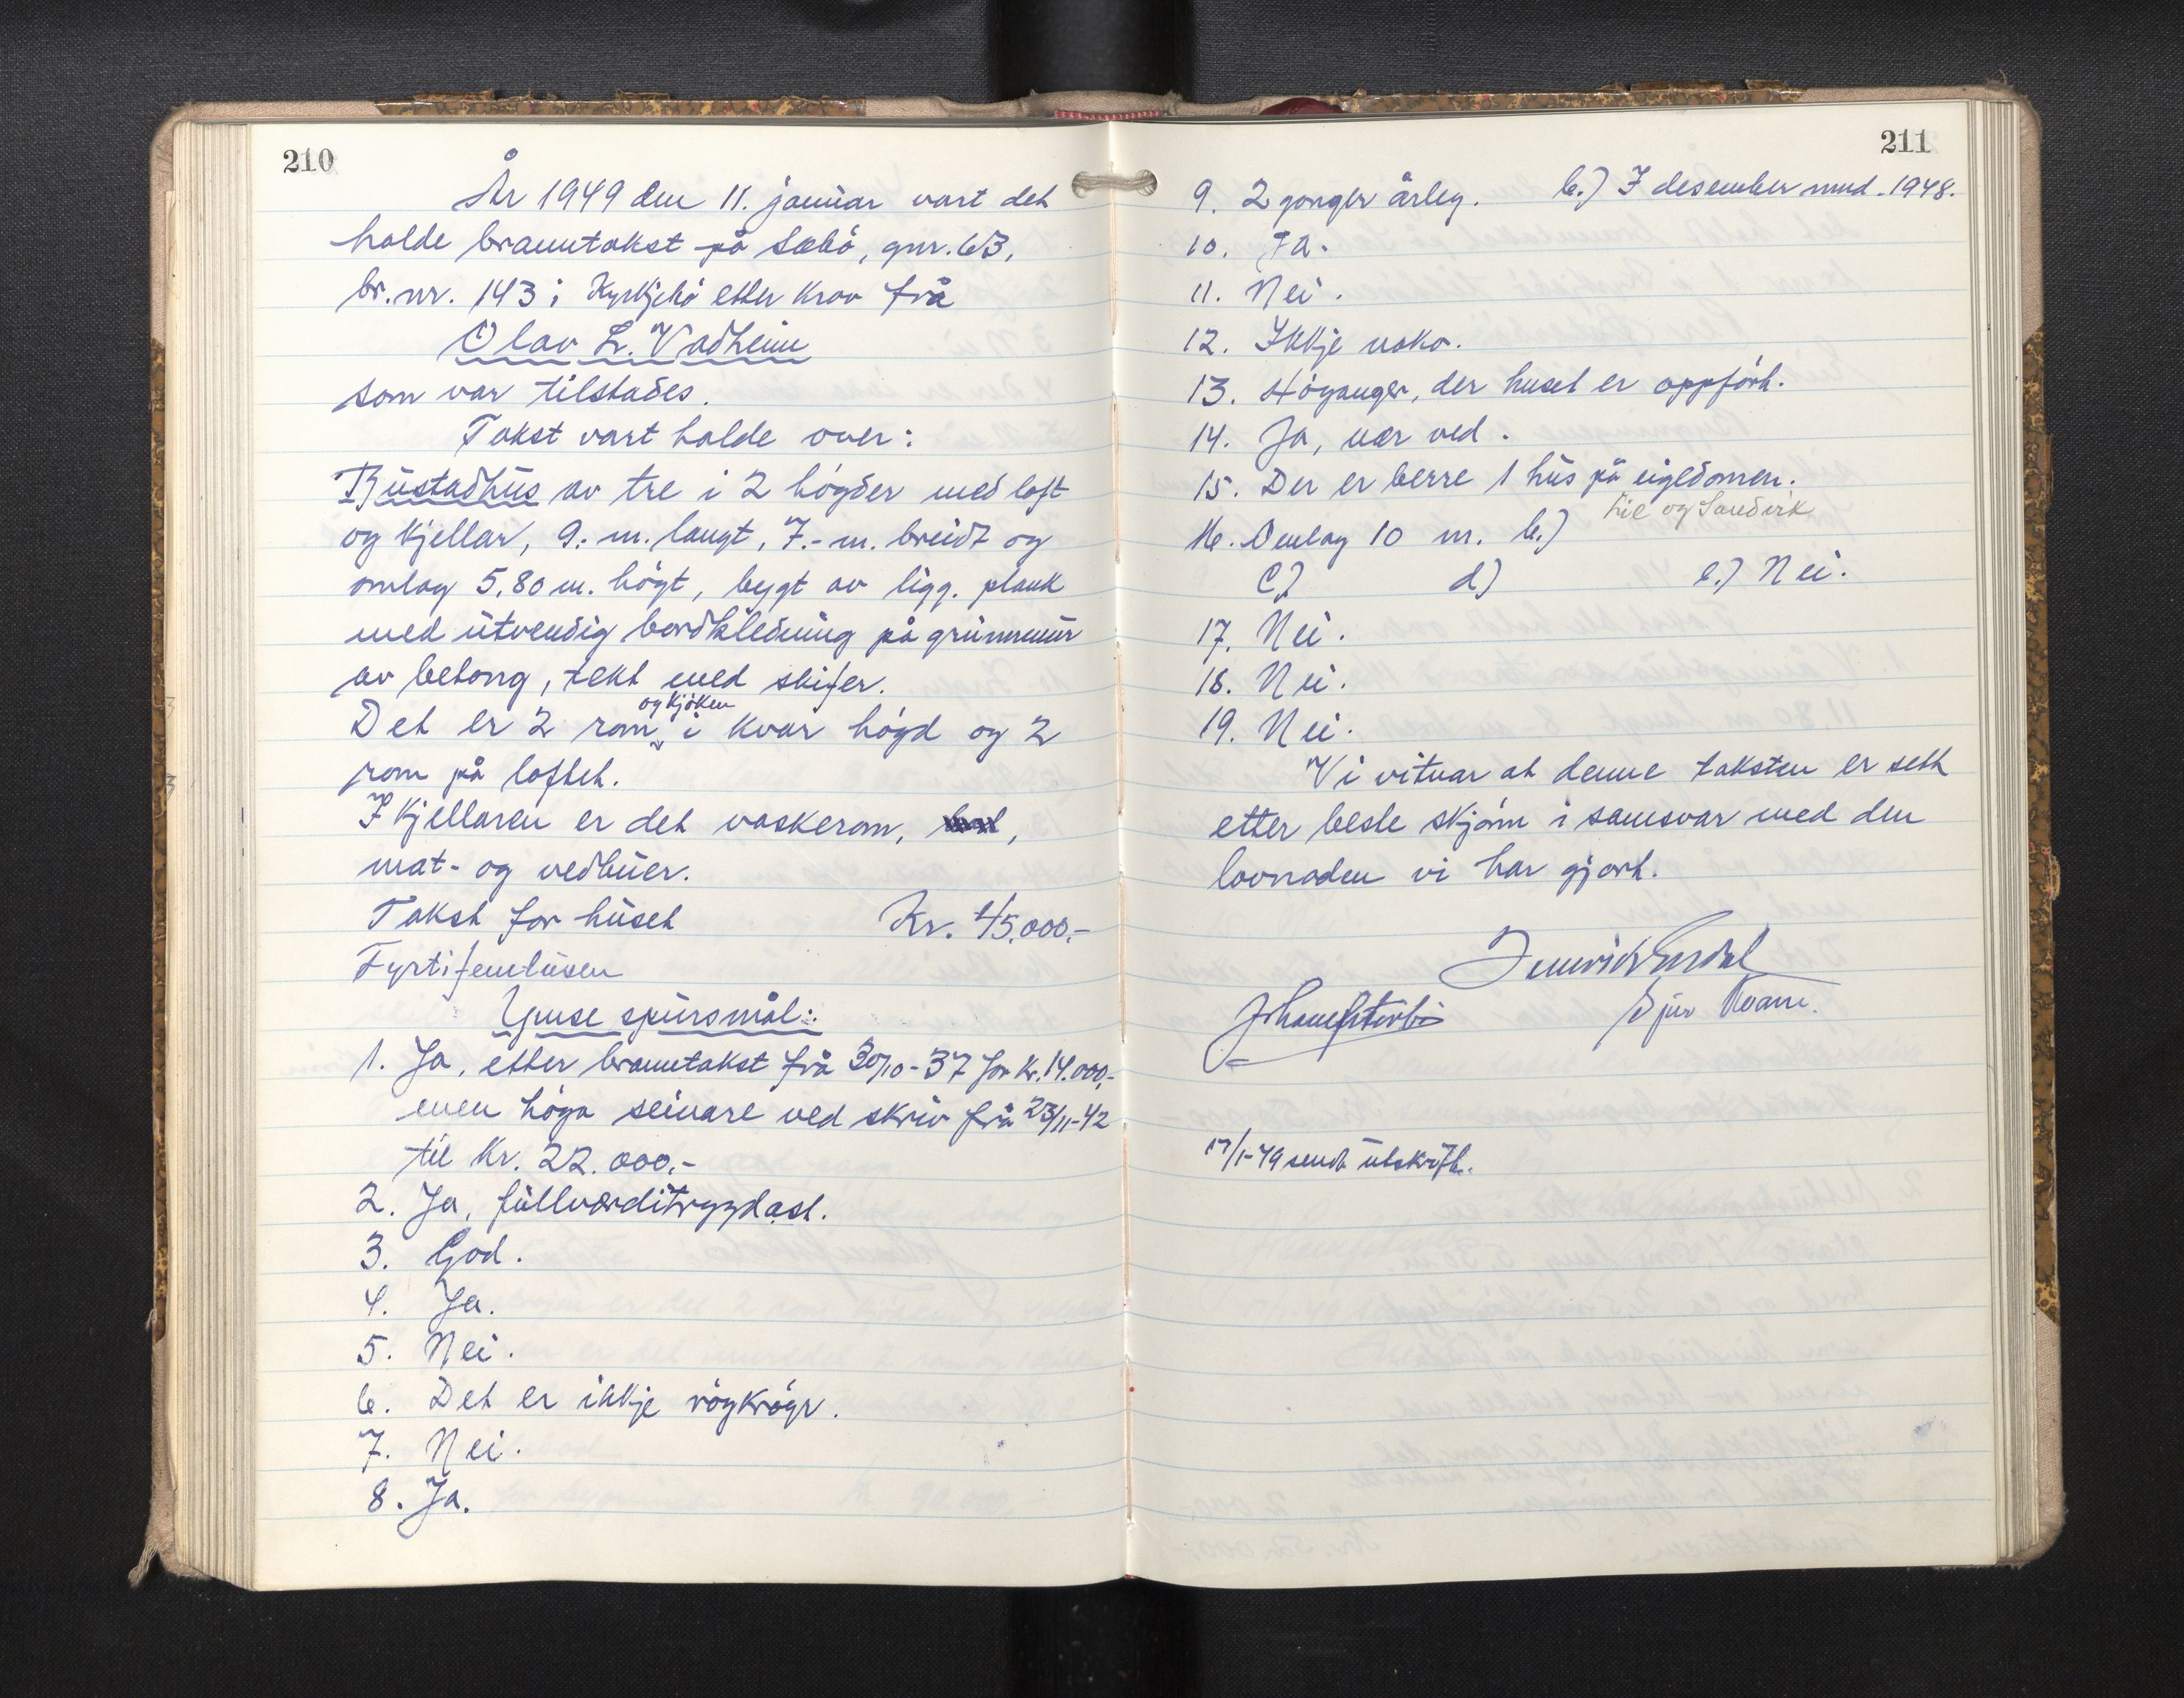 210
År 1949 den 11. januar vart det
halde branntakst på Sæbö, gnr. 63,
br.nr. 143 i Kyrkjebö etter krav frå
Olav L. Vadheim
som var tilstades.
Takst vart halde over:
Bustadhus av tre i 2 högder med loft
og kjellar, 9.- m. langt, 7.- m. breidt og
omlag 5,80 m. högt, bygt av ligg. plank
med utvendig bordkledning på grunnmur
av betong, tekt med skifer.
og kjöken
Det er 2 rom i kvar högd og 2
rom på loftet.
I kjellaren er det vaskerom,
mat- og vedbuer.
Takst for huset Kr. 45.000.-
Fyrtifemtusen
Ymse spursmål:
1. Ja, etter branntakst frå 30/10-37 for kr. 14.000,-
men höga seinare ved skriv frå 23/11-42
til kr. 22.000,-
2. Ja, fullverditrygdast.
3. God.
4. Ja.
5. Nei.
6. Det er ikkje röykrögr.
7. Nei.
8. Ja.
211
9. 2 gonger årleg. b.) I desember mnd. 1948.
10. Ja.
11. Nei.
12. Ikkje noko.
13. Höyanger, der huset er oppfört.
14. Ja, nær ved.
15. Der er berre 1 hus på eigedomen.
Lie og Sandvik
16. Omlag 10 m. b.)
c) d) e.) Nei.
17. Nei.
18. Nei.
19. Nei.
Vi vitnar at denne taksten er sett
etter beste skjönn i samsvar med den
lovnaden vi har gjort.
Sjur Kvamme
17/1-49 sendt utskrift.